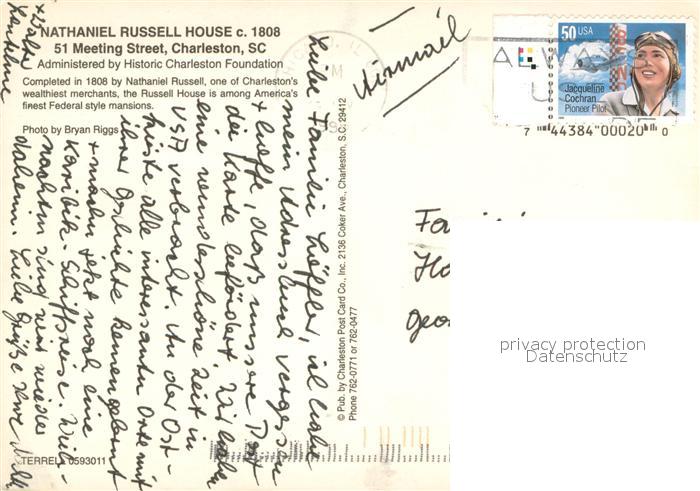 NATHANIEL RUSSELL HOUSE c. 1808
51 Meeting Street, Charleston, SC
Administered by Historic Charleston Foundation
Completed in 1808 by Nathaniel Russell, one of Charleston's
wealthiest merchants, the Russell House is among America's
finest Federal style mansions.
Photo by Bryan Riggs
Airmail
50 USA
Jacqueline
Cochran
Pioneer Pilot
ALWA
7 44384"00020 0
Liebe Familie Löffler, ich habe
mein Adressbuch vergessen
+ hoffe, daß unsere Post
die Karte befördert. Wir haben
eine wunderschöne Zeit in
USA verbracht. An der Ost-
küste alle interessanten Orte mit
ihrer Geschichte kennengelernt
+ machen jetzt noch eine
Karibik-Schiffsreise. Weih-
nachten sind wir wieder
daheim. Liebe Grüße Ihre
+ Walter
© Pub. by Charleston Post Card Co., Inc. 2136 Coker Ave., Charleston, S.C. 29412
Phone 762-0771 or 762-0477
Fa
Ha
Geo
TERRELL 0593011
privacy protection
Datenschutz